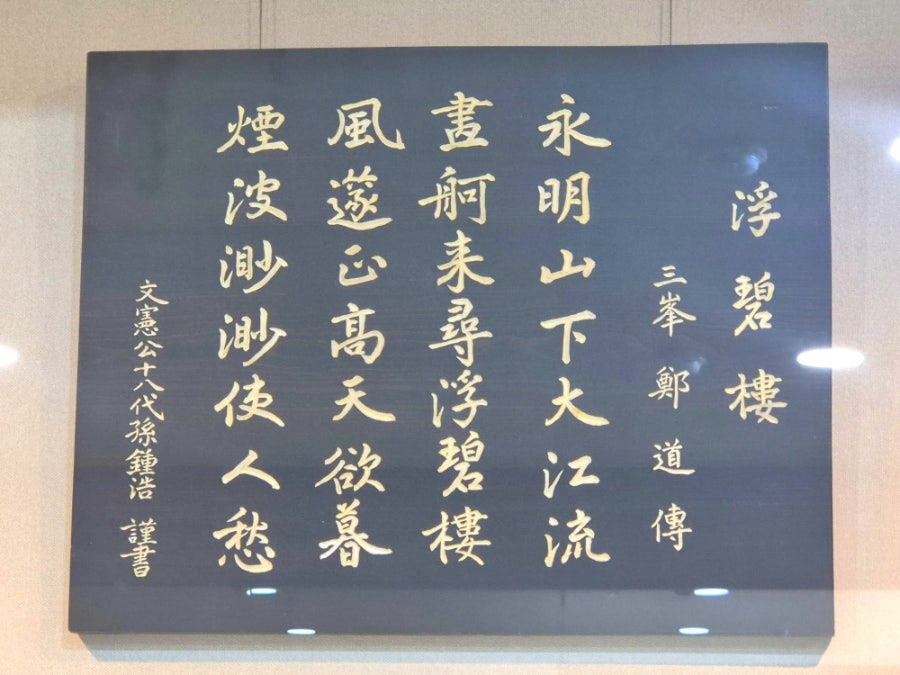 浮碧樓
三峯鄭道傳
永明山下大江流
畫舸来尋浮碧樓
風篴正髙天欲暮
煙波渺渺使人愁
文憲公十八代孫鍾浩 謹書